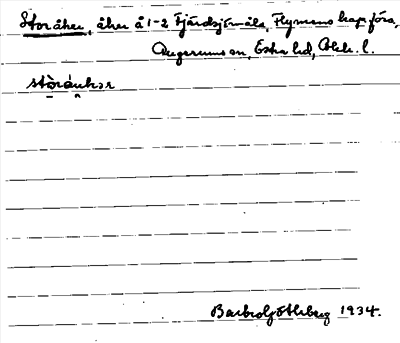 Storåker, åker å 1-2 Fjärdsjömåla, Flymens kapförs,
Augerums sn, Östra hd, Blek. l.
stòrấukər
Barbro Göthberg 1934.